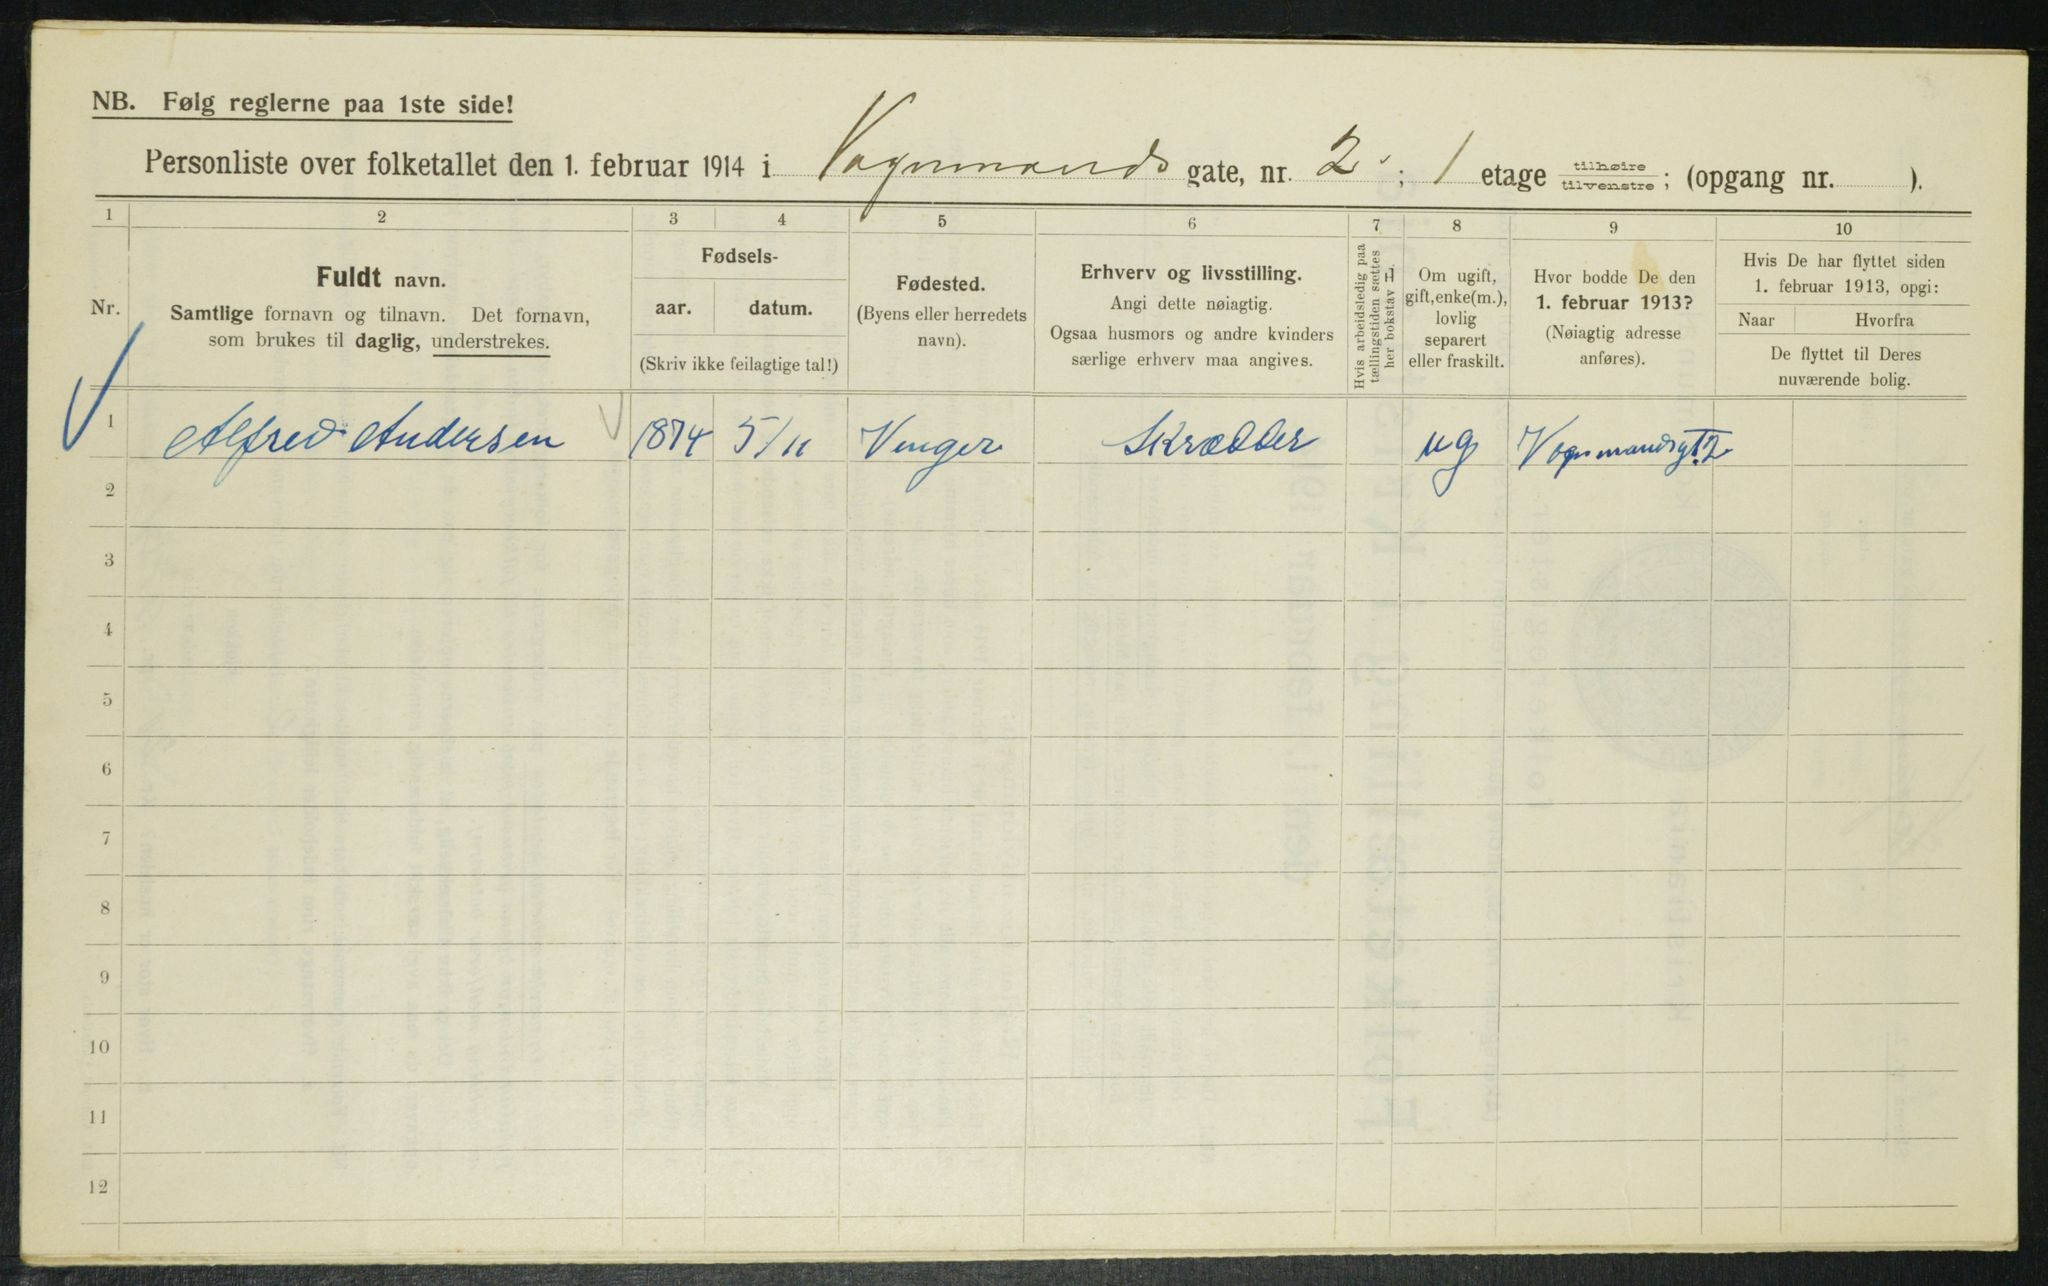 NB. Følg reglerne paa 1ste side!
Personliste over folketallet den 1. februar 1914 i Vognmands gate, nr. 2 ; 1 etage tilhøire tilvenstre ; (opgang nr. ).
1 2 3 4 5 6 7 8 9 10
Nr.
Fuldt navn.
Samtlige fornavn og tilnavn. Det fornavn,
som brukes til daglig, understrekes.
Fødsels-
aar. datum.
(Skriv ikke feilagtige tal!)
Fødested.
(Byens eller herredets
navn).
Erhverv og livsstilling.
Angi dette nøiagtig.
Ogsaa husmors og andre kvinders
særlige erhverv maa angives.
Hvis arbeidsledig paa
tællingstiden sættes
her bokstav L
Om ugift,
gift, enke(m.),
lovlig
separert
eller fraskilt.
Hvor bodde De den
1. februar 1913?
(Nøiagtig adresse
anføres).
Hvis De har flyttet siden
1. februar 1913, opgi:
Naar Hvorfra
De flyttet til Deres
nuværende bolig.
1 Alfred Andersen 1874 5/11 Vinger Skrædder ug Vognmandsgt. 2
2
3
4
5
6
7
8
9
10
11
12